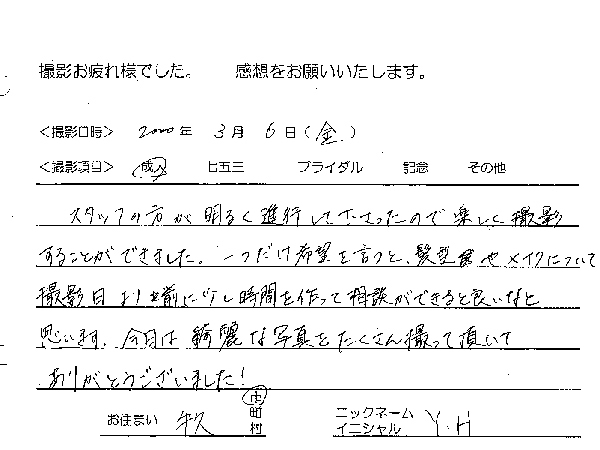 撮影お疲れ様でした。 感想をお願いいたします。
<撮影日時> 2000年 3月 6日(金)
<撮影項目> 成人 七五三 ブライダル 記念 その他
スタッフの方が明るく進行して下さったので楽しく撮影
することができました。一つだけ希望を言うと、髪型やメイクについて
撮影日より前に少し時間を作って相談ができると良いなと
思います。今日は綺麗な写真をたくさん撮って頂いて
ありがとうございました!
お住まい 市町村 ニックネーム イニシャル Y.H